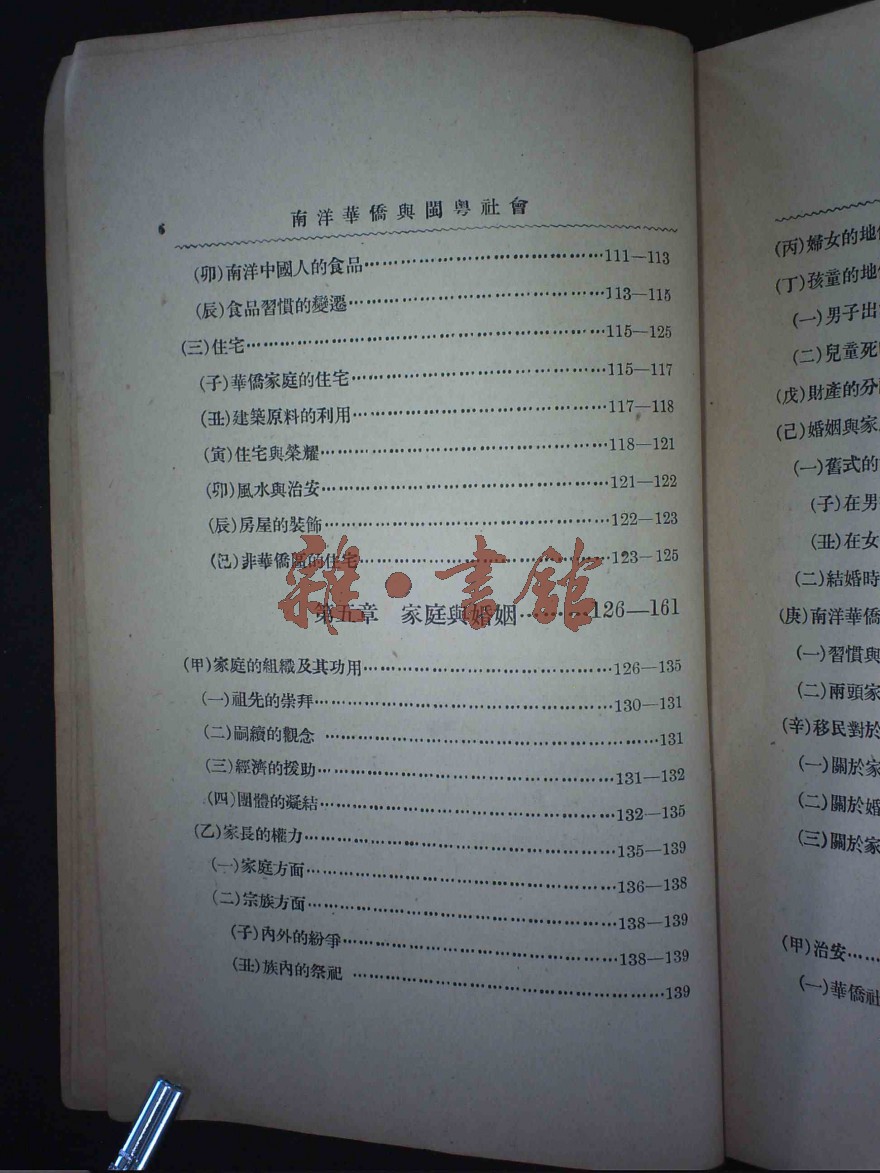 6 南洋華僑與閩粵社會
(卯)南洋中國人的食品………111—113
(辰)食品習慣的變遷………113—115
(三)住宅………115—125
(子)華僑家庭的住宅………115—117
(丑)建築原料的利用………117—118
(寅)住宅與榮耀………118—121
(卯)風水與治安………121—122
(辰)房屋的裝飾………122—123
(己)非華僑區的住宅………123—125
雜·書館
第五章 家庭與婚姻………126—161
(甲)家庭的組織及其功用………126—135
(一)祖先的崇拜………130—131
(二)嗣續的觀念………131
(三)經濟的援助………131—132
(四)團體的凝結………132—135
(乙)家長的權力………135—139
(一)家庭方面………136—138
(二)宗族方面………138—139
(子)內外的紛爭………138—139
(丑)族內的祭祀………139
(丙)婦女的地
(丁)孩童的地
(一)男子出
(二)兒童死
(戊)財產的分
(己)婚姻與家
(一)舊式的
(子)在男
(丑)在女
(二)結婚時
(庚)南洋華僑
(一)習慣與
(二)兩頭家
(辛)移民對於
(一)關於家
(二)關於婚
(三)關於家
(甲)治安……
(一)華僑社